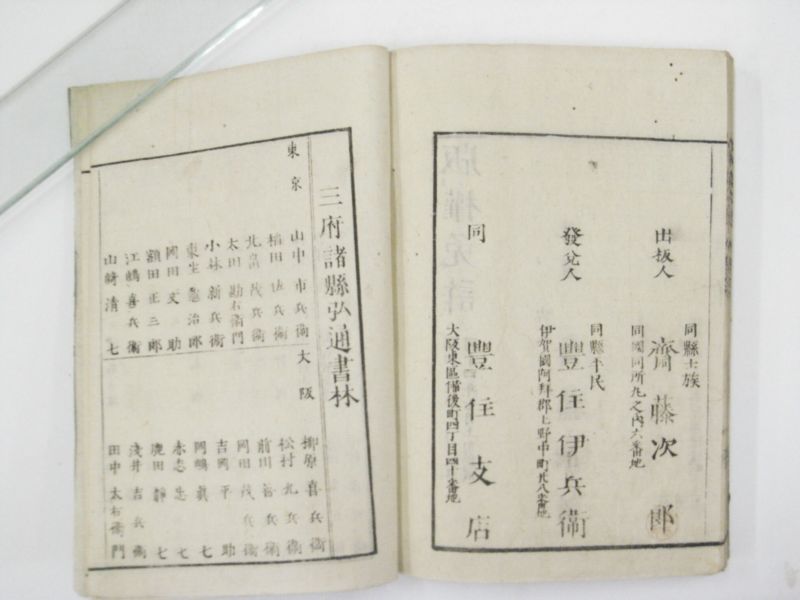 出板人
同縣士族
齋藤次郎
同國同所九之内六番地
發兌人
同縣平民
豐住伊兵衞
伊賀國阿拜郡上野中町廿八番地
同
豐住支店
大阪東區備後町四丁目四十番地
三府諸縣弘通書林
東京
山中市兵衞
稻田佐兵衞
北畠茂兵衞
太田勘右衞門
小林新兵衞
東生龜治郎
岡田文助
額田正三郎
江嶋喜兵衞
山﨑清七
大阪
柳原喜兵衞
松村九兵衞
前川善兵衞
岡田茂兵衞
吉岡平助
岡嶋眞七
赤志忠七
鹿田靜七
淺井吉兵衞
田中太右衞門